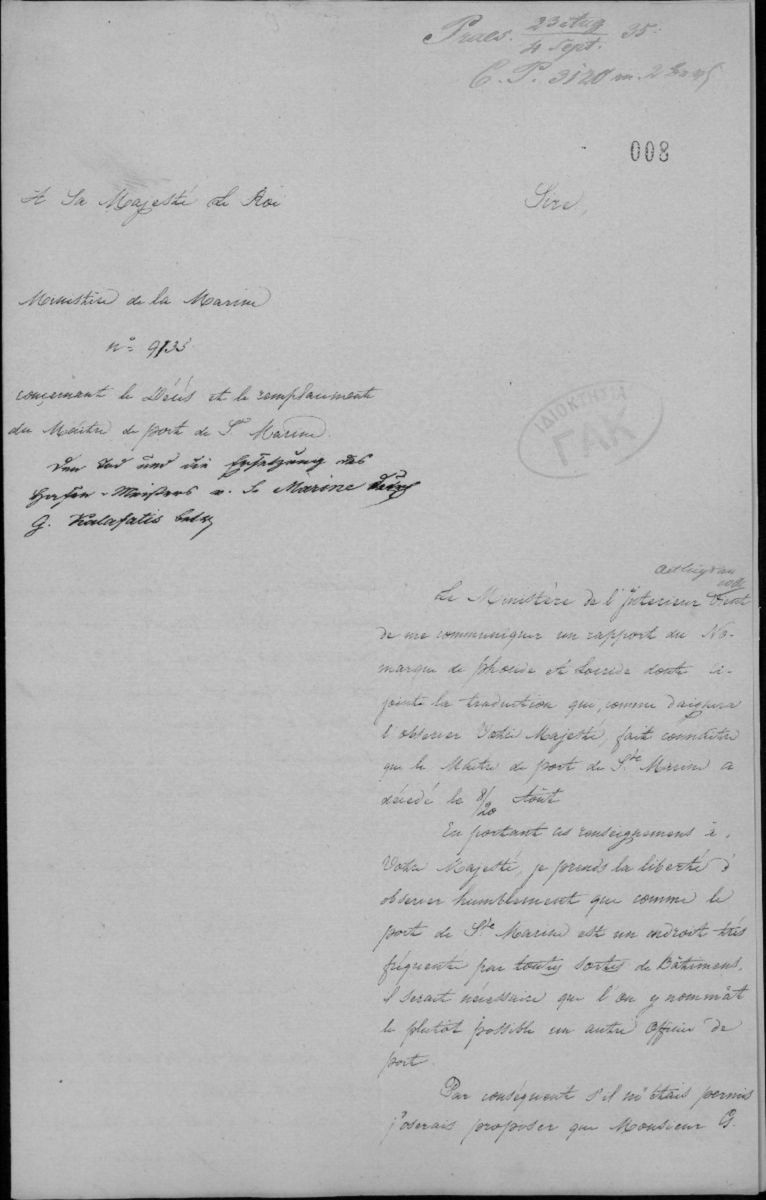 Praes. 23 Aug / 4 Sept. 35.
C. P. 3120
008
A Sa Majesté Le Roi
Sire,
Ministère de la Marine
n° 9135.
concernant le Décès et le remplacement
du Maitre de port de Ste Marine.
Den Tod und die Ersetzung des
Hafen-Meisters v. St Marine durch
G. Kalafatis
ΙΔΙΟΚΤΗΣΙΑ
ΓΑΚ
Le Ministère de l'Interieur vient
de me communiquer un rapport du No-
marque de phocide et Locride dont ci-
jointe la traduction que, comme daignera
l'observer Votre Majesté, fait connaitre
que le Maitre de port de Ste Marine a
décédé le 8/20 Août
En portant ces renseignemens à
Votre Majesté, je prends la liberté d'
observer humblement que comme le
port de Ste Marine est un endroit très
fréquenté par toutes sortes de Bâtimens,
il serait nécessaire que l'on y nommât
le plutôt possible un autre officier de
port.
Par conséquent s'il m'étais permis
j'oserais proposer que Monsieur G.